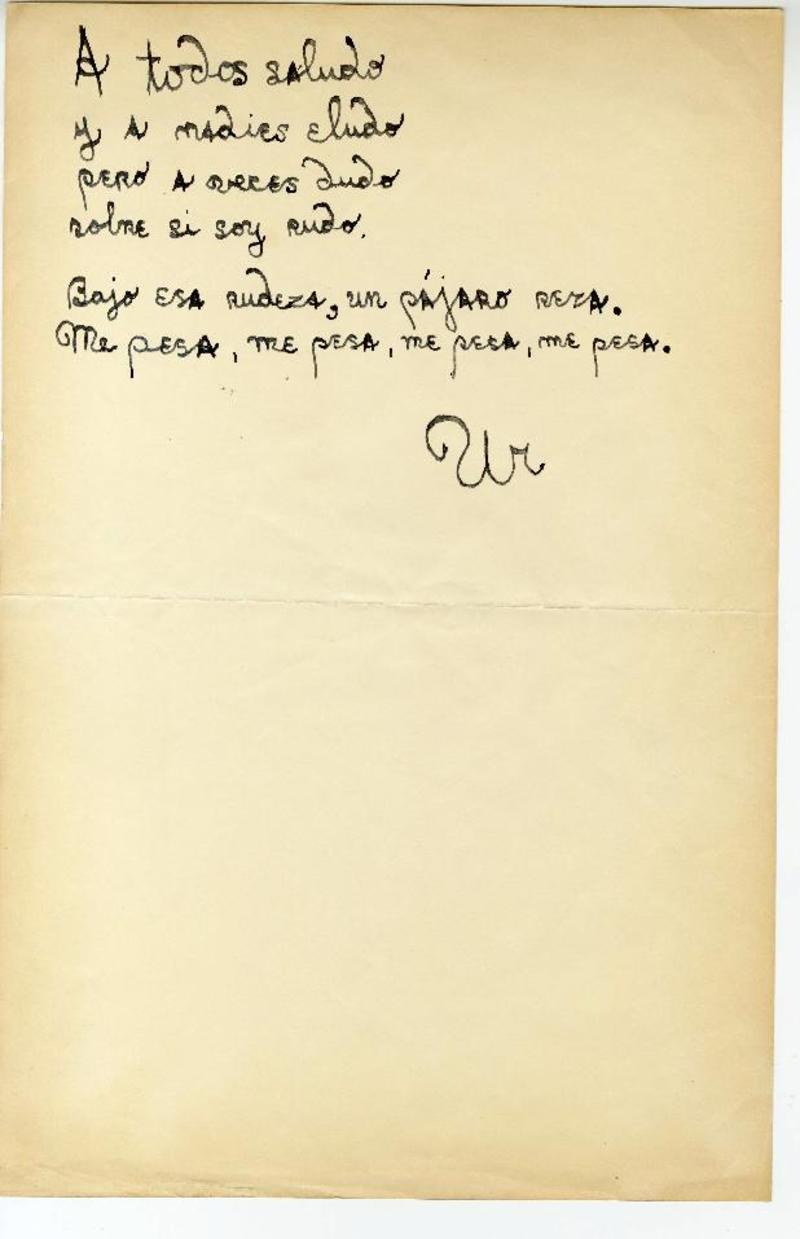 A todos saludo
y a nadies eludo
pero a veces dudo
sobre si soy rudo.
Bajo esa rudeza, un pájaro reza.
Me pesa, me pesa, me pesa, me pesa.
Ur